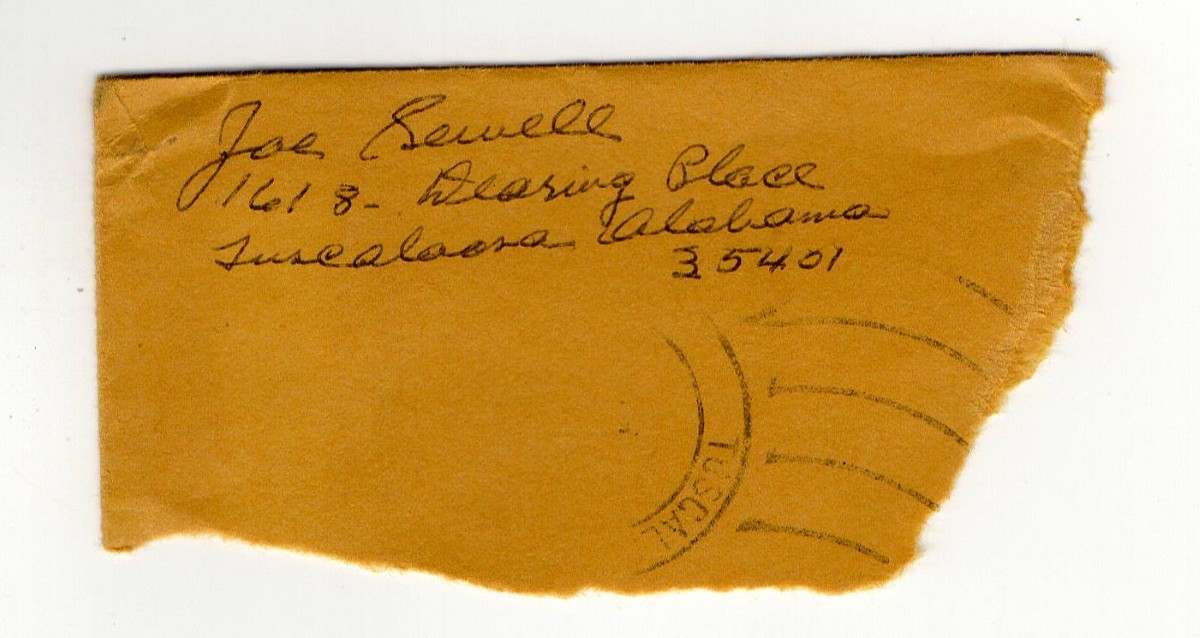 Joe Sewell
1618- Dearing Place
Tuscaloosa Alabama
35401
TUSCAL